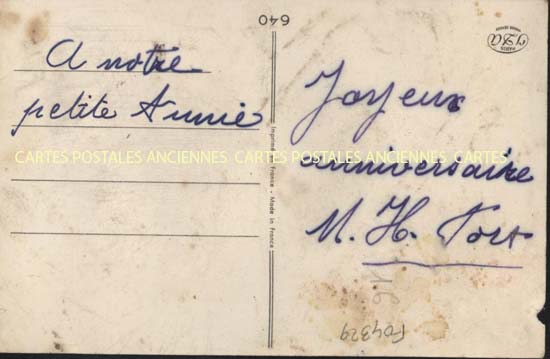 640
A notre
petite Annie
Joyeux
anniversaire
M. H. Fort
CARTES POSTALES ANCIENNES CARTES POSTALES ANCIENNES CARTES
Imprimé en France - Made in France
PARIS
F04329